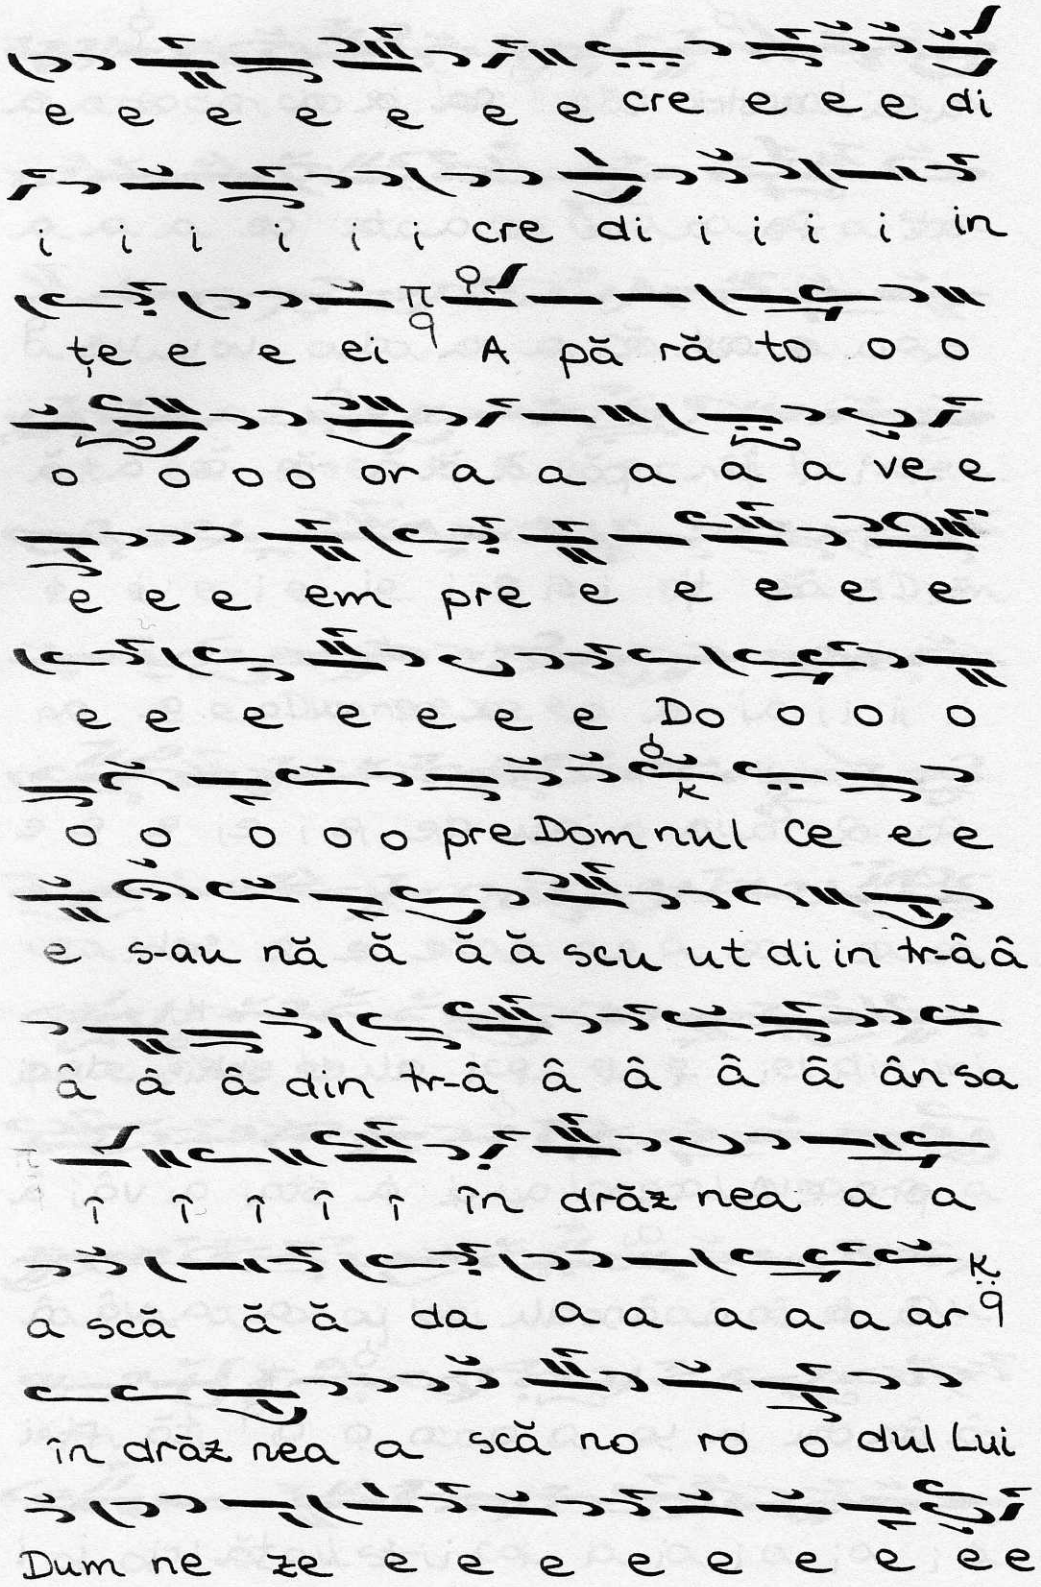 e e e e e e e cre e e e di
i i i i i i cre di i i i i in
țe e e ei A pă ră to o o
o o o o or a a a a a ve e
e e e em pre e e e e e
e e e e e e e Do o o o
o o o o o pre Dom nul ce e e
e s-au nă ă ă ă scu ut di in tr-â â
â â â din tr-â â â â â ân sa
î î î î î în drăz nea a a
a scă ă ă da a a a a a ar
în drăz nea a scă no ro o dul Lui
Dum ne ze e e e e e e e e e